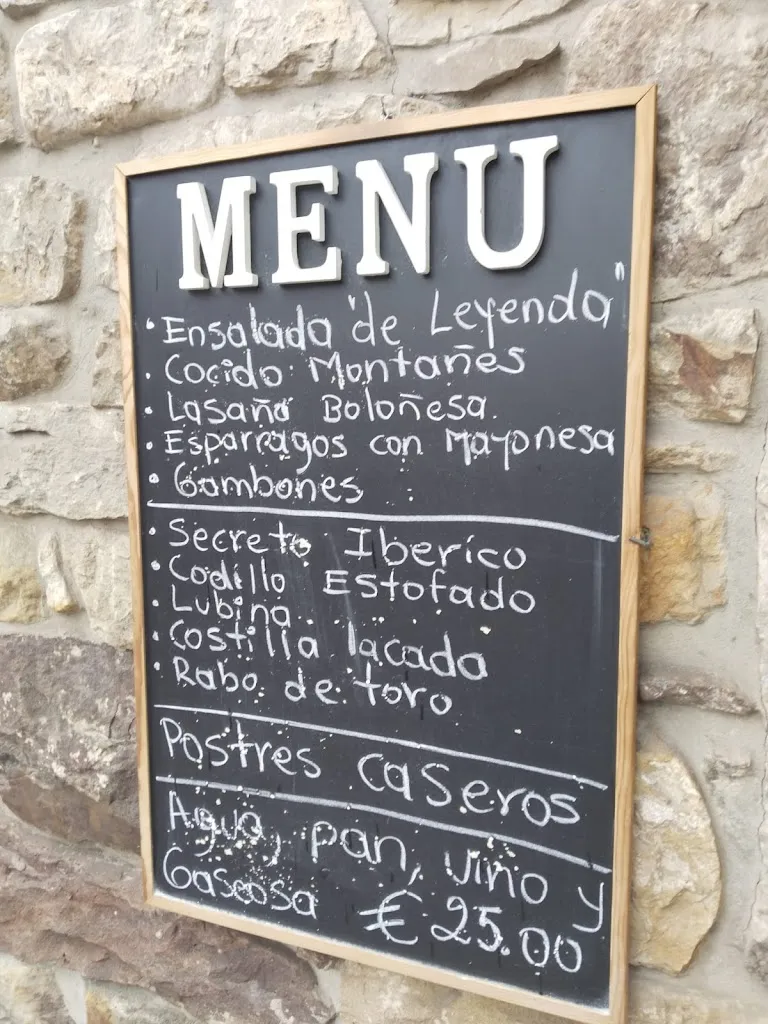 MENU
• Ensalada "de Leyenda"
• Cocido Montañes
• Lasaña Boloñesa.
• Esparragos con Mayonesa
• Gambones
• Secreto Iberico
• Codillo Estofado
• Lubina
• Costilla lacada
• Rabo de toro
Postres caseros
Agua, pan, vino y
Gaseosa €25.00